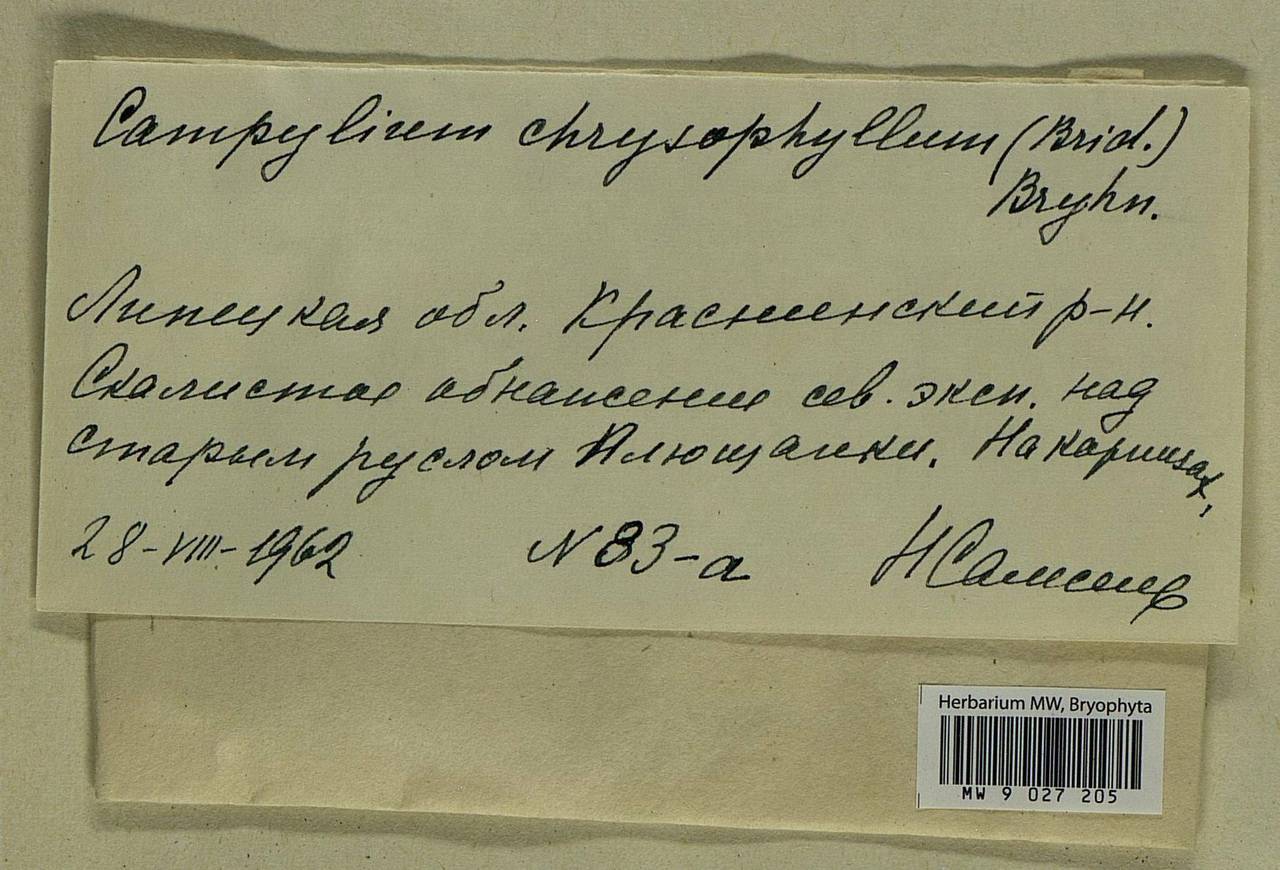 Campylium chrysophyllum (Brid.)
Bryhn.
Липецкая обл. Краснинский р-н.
Скалистое обнажение сев. эксп. над
старым руслом Плющанки. На карнизах,
28-VIII-1962 N 83-а Н
Herbarium MW, Bryophyta
MW 9 027 205